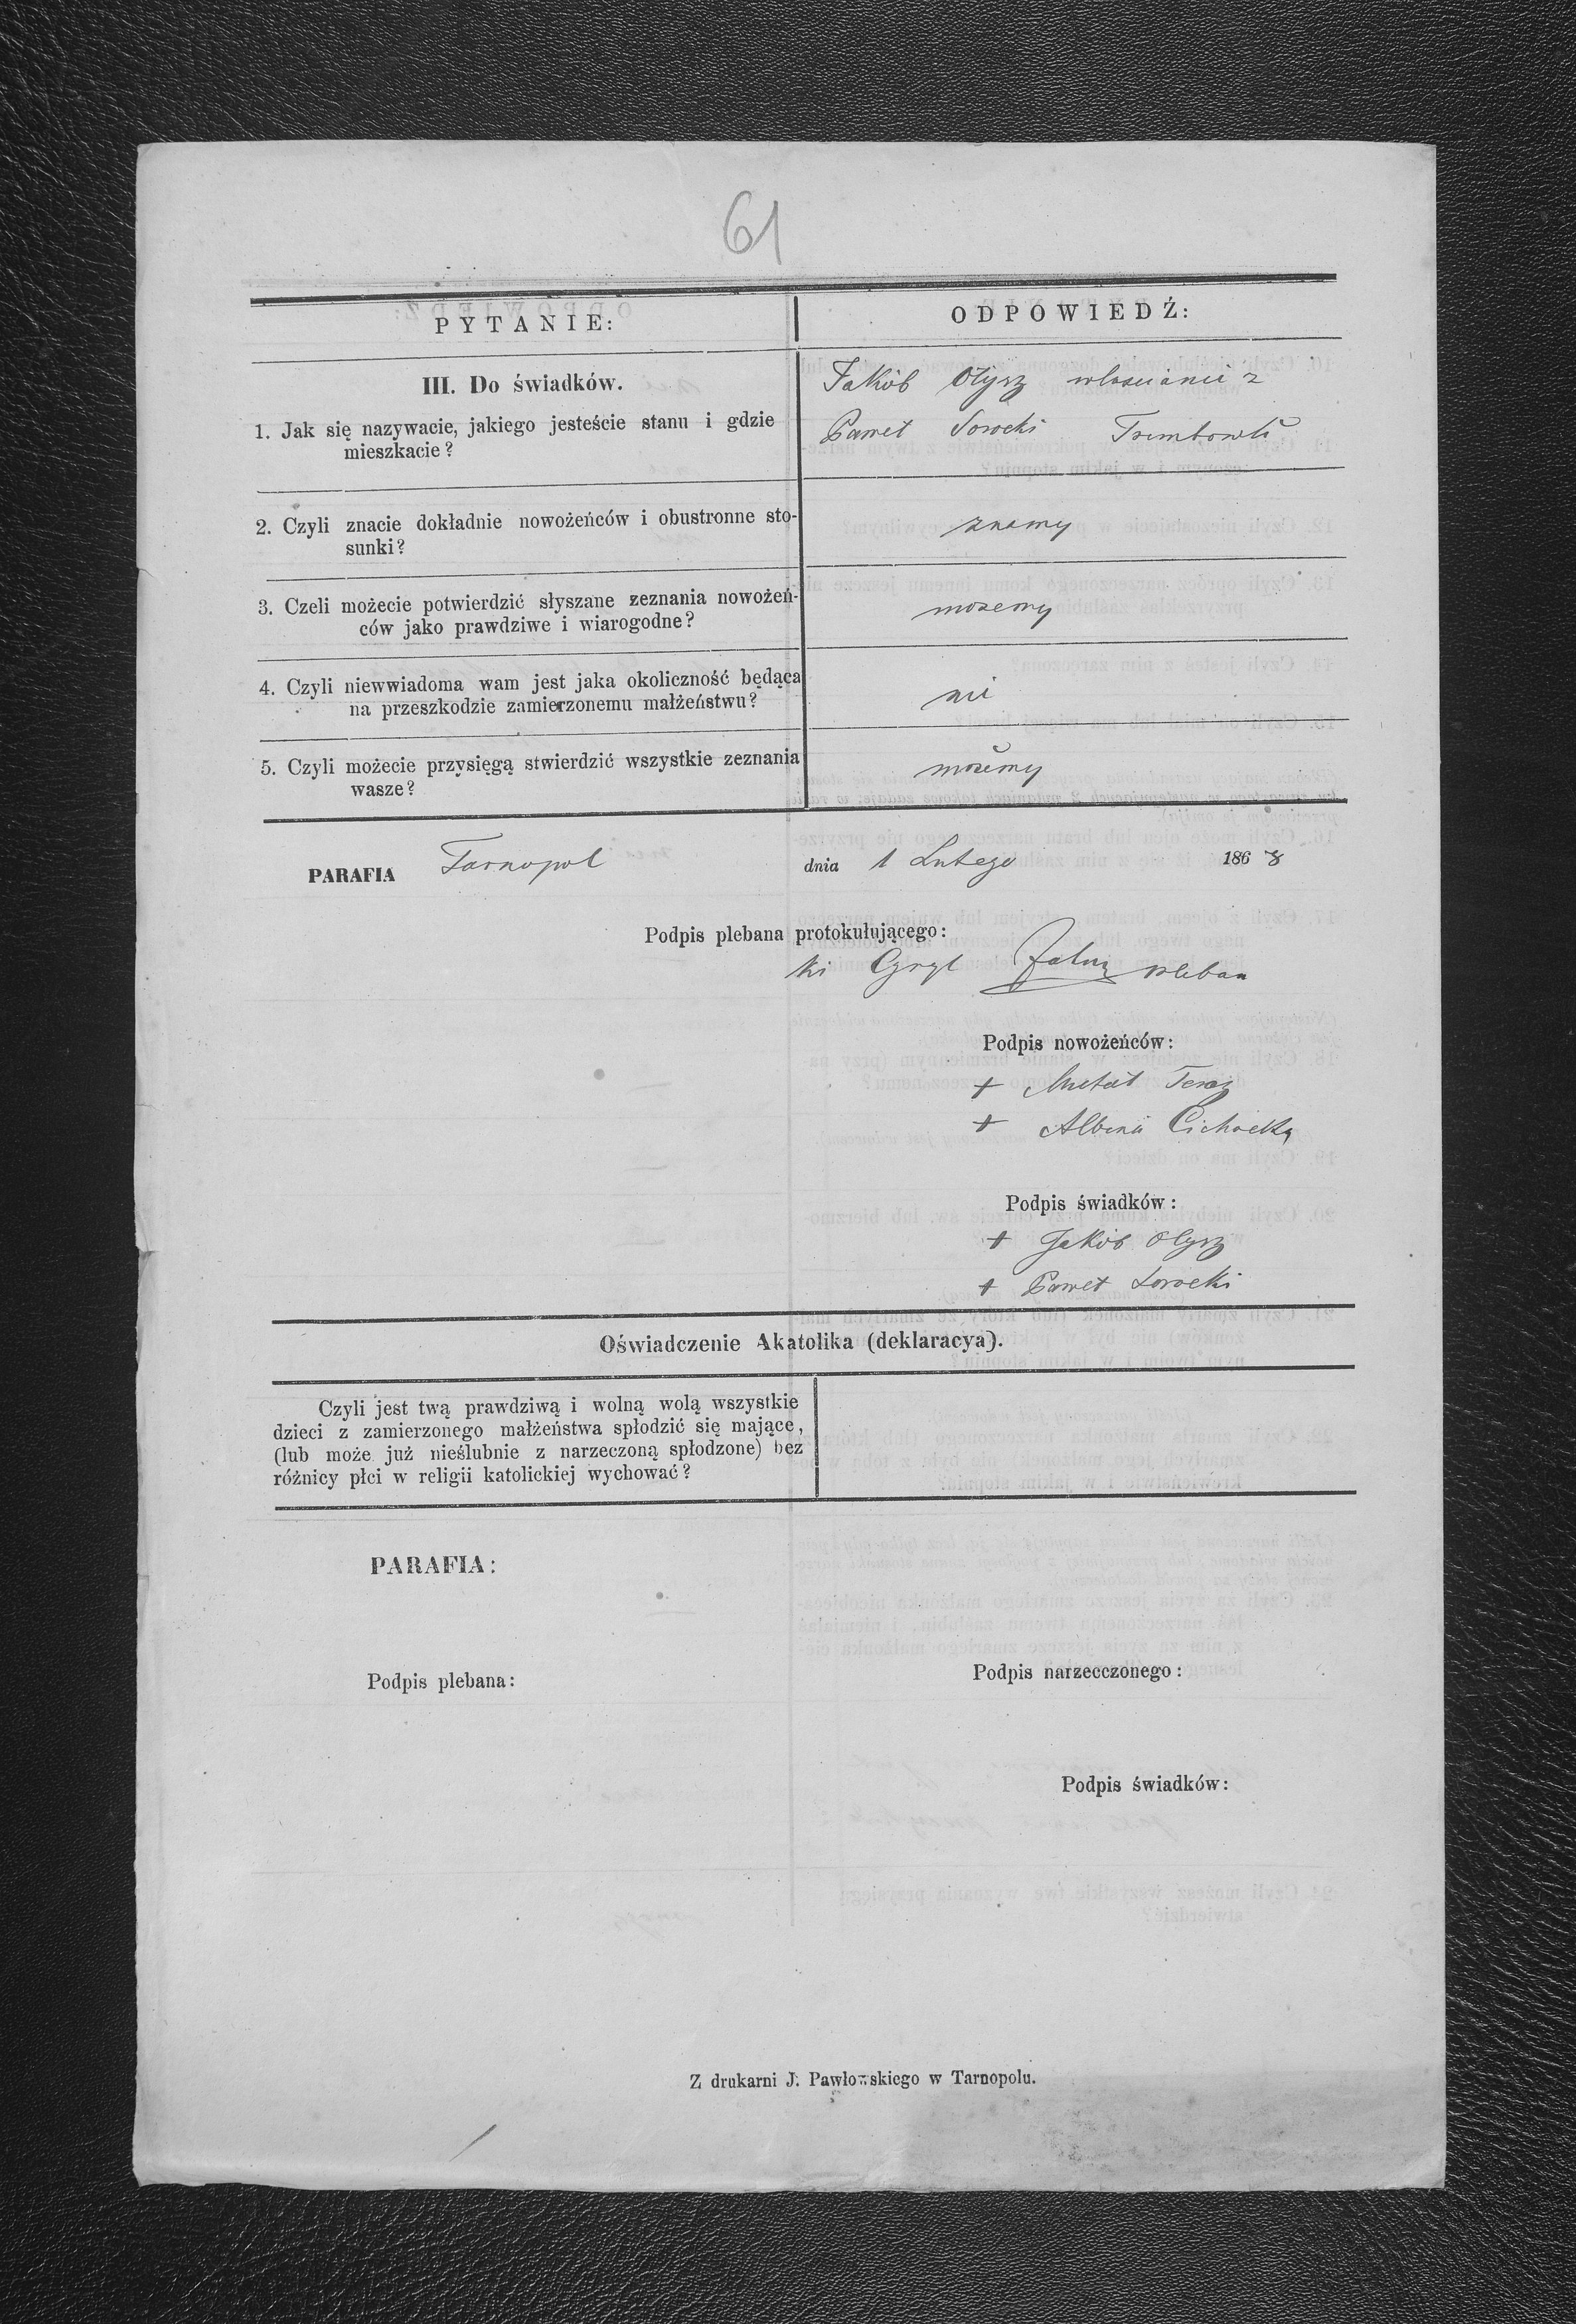 61
PYTANIE:
ODPOWIEDŹ:
III. Do świadków.
1. Jak się nazywacie, jakiego jesteście stanu i gdzie
mieszkacie?
Jakób Ołysz włościanie z
Paweł Sorocki Trembowli
2. Czyli znacie dokładnie nowożeńców i obustronne sto-
sunki?
znamy
3. Czeli możecie potwierdzić słyszane zeznania nowożeń-
ców jako prawdziwe i wiarogodne?
możemy
4. Czyli niewwiadoma wam jest jaka okoliczność będąca
na przeszkodzie zamierzonemu małżeństwu?
nie
5. Czyli możecie przysięgą stwierdzić wszystkie zeznania
wasze?
możemy
PARAFIA Tarnopol dnia 1 Lutego 1868
Podpis plebana protokułującego:
Cyryl pleban
Podpis nowożeńców:
+ Michał
+ Albina Cichocka
Podpis świadków:
+ Jakób Ołysz
+ Paweł Sorocki
Oświadczenie Akatolika (deklaracya).
Czyli jest twą prawdziwą i wolną wolą wszystkie
dzieci z zamierzonego małżeństwa spłodzić się mające,
(lub może już nieślubnie z narzeczoną spłodzone) bez
różnicy płci w religii katolickiej wychować?
PARAFIA:
Podpis plebana:
Podpis narzecczonego:
Podpis świadków:
Z drukarni J. Pawłowskiego w Tarnopolu.